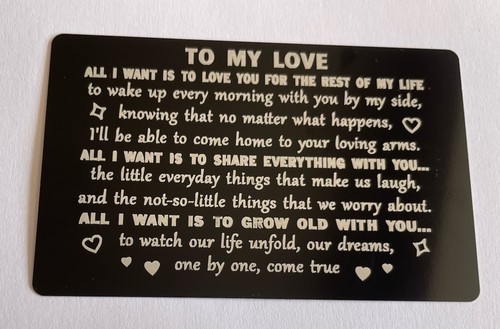 TO MY LOVE
ALL I WANT IS TO LOVE YOU FOR THE REST OF MY LIFE
to wake up every morning with you by my side,
knowing that no matter what happens,
I'll be able to come home to your loving arms.
ALL I WANT IS TO SHARE EVERYTHING WITH YOU...
the little everyday things that make us laugh,
and the not-so-little things that we worry about.
ALL I WANT IS TO GROW OLD WITH YOU...
to watch our life unfold, our dreams,
one by one, come true